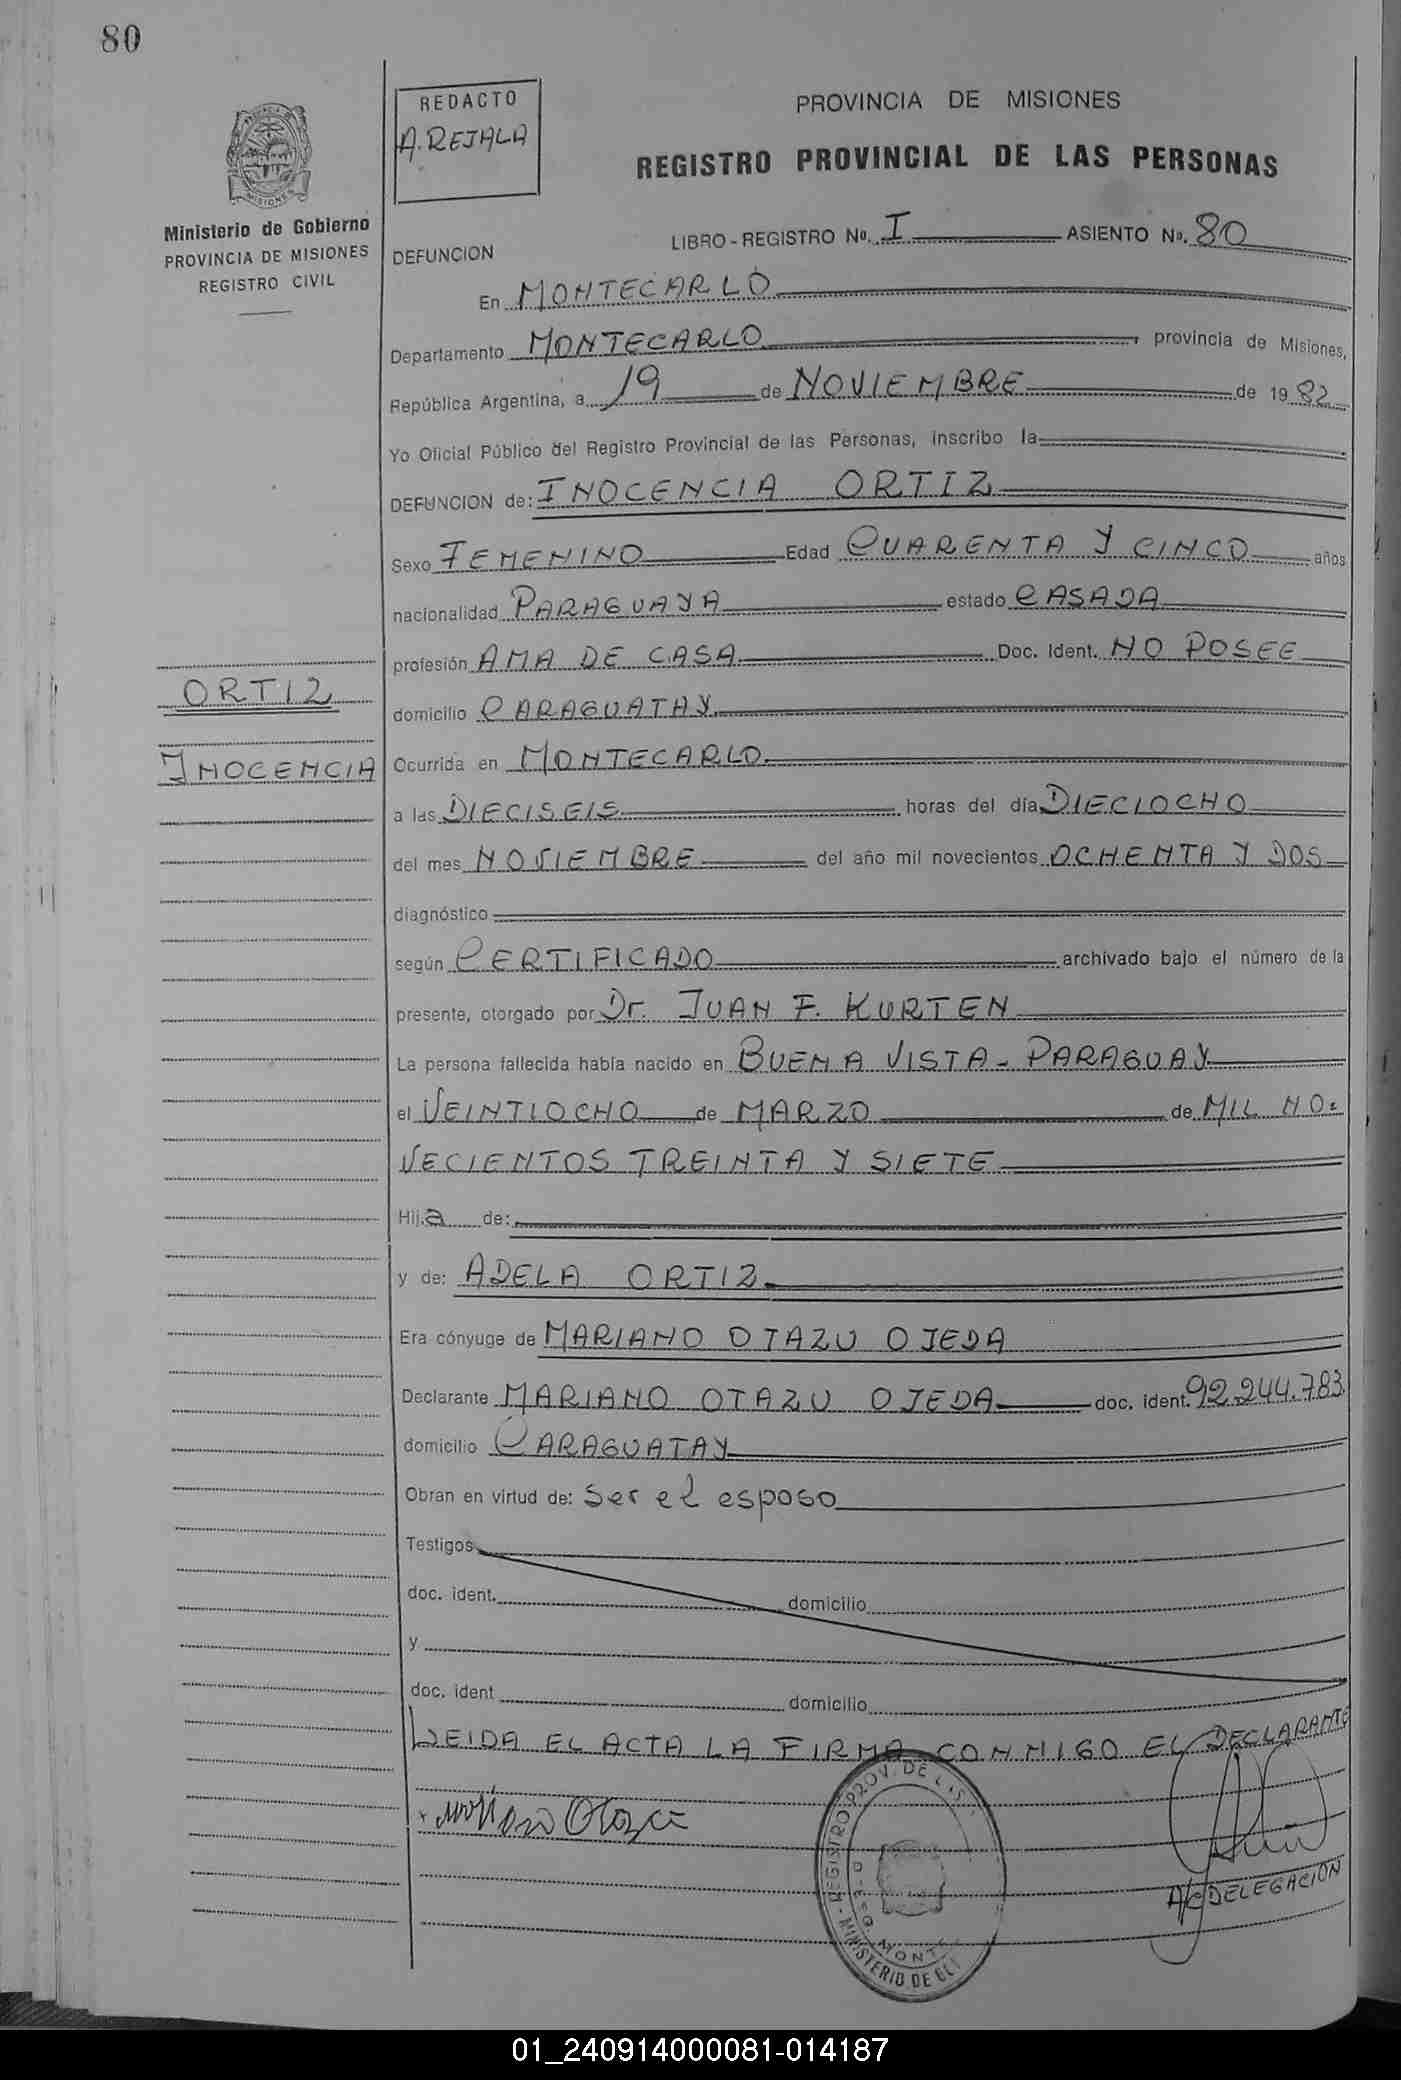 80
REDACTO
A. REJALA
PROVINCIA DE MISIONES
REGISTRO PROVINCIAL DE LAS PERSONAS
MISIONES
Ministerio de Gobierno
PROVINCIA DE MISIONES
REGISTRO CIVIL
LIBRO - REGISTRO Nº. I ASIENTO Nº. 80
DEFUNCION
En MONTECARLO
Departamento MONTECARLO, provincia de Misiones,
República Argentina, a 19 de NOVIEMBRE de 1982
Yo Oficial Público del Registro Provincial de las Personas, inscribo la
DEFUNCION de: INOCENCIA ORTIZ
Sexo FEMENINO Edad CUARENTA Y CINCO años
nacionalidad PARAGUAYA estado CASADA
profesión AMA DE CASA Doc. Ident. NO POSEE
ORTIZ
domicilio CARAGUATAY
INOCENCIA
Ocurrida en MONTECARLO
a las DIECISEIS horas del día DIECIOCHO
del mes NOVIEMBRE del año mil novecientos OCHENTA Y DOS
diagnóstico
según CERTIFICADO archivado bajo el número de la
presente, otorgado por Dr. JUAN F. KURTEN
La persona fallecida había nacido en BUENA VISTA - PARAGUAY
el VEINTIOCHO de MARZO de MIL NO=
VECIENTOS TREINTA Y SIETE
Hija de:
y de: ADELA ORTIZ
Era cónyuge de MARIANO OTAZU OJEDA
Declarante MARIANO OTAZU OJEDA doc. ident. 92.244.783
domicilio CARAGUATAY
Obran en virtud de: ser el esposo
Testigos
doc. ident. domicilio
y
doc. ident domicilio
LEIDA EL ACTA LA FIRMA CONMIGO EL DECLARANTE
x Mariano Otazu
REGISTRO PROV. DE LAS
MINISTERIO DE
A/C DELEGACION
01_240914000081-014187